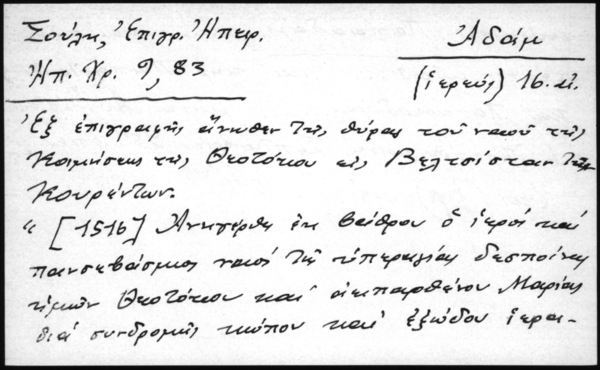 Σούλη, Ἐπιγρ. Ἠπειρ.
Ἀδάμ
Ἠπ. Χρ. 9, 83
(ἱερεύς) 16. αἰ.
Ἐξ ἐπιγραφῆς ἄνωθεν τῆς θύρας τοῦ ναοῦ τῆς
Κοιμήσεως τῆς Θεοτόκου εἰς Βελτσίσταν τῶν
Κουρέντων.
“ [1516] Ἀνηγέρθη ἐκ βάθρου ὁ ἱερός καί
πανσεβάσμιος ναός τῆς ὑπεραγίας δεσποίνης
ἡμῶν Θεοτόκου καί ἀειπαρθένου Μαρίας
διά συνδρομῆς κώπου καί ἐξώδου ἱερω-